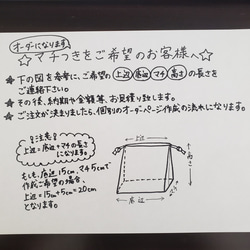 オーダーになります。
☆マチつきをご希望のお客様へ☆
★下の図を参考に、ご希望の上辺 底辺 マチ 高さの長さを
ご連絡下さい。
★その後、納期や金額等、お見積り致します。
★ご注文が決まりましたら、個別のオーダーページ作成の流れになります。
☆注意☆
上辺=底辺+マチの長さ
になります。
もしも、底辺15cm、マチ5cmで
作成ご希望の場合、
上辺=15cm+5cm=20cm
となります。
上辺
高さ
マチ
底辺